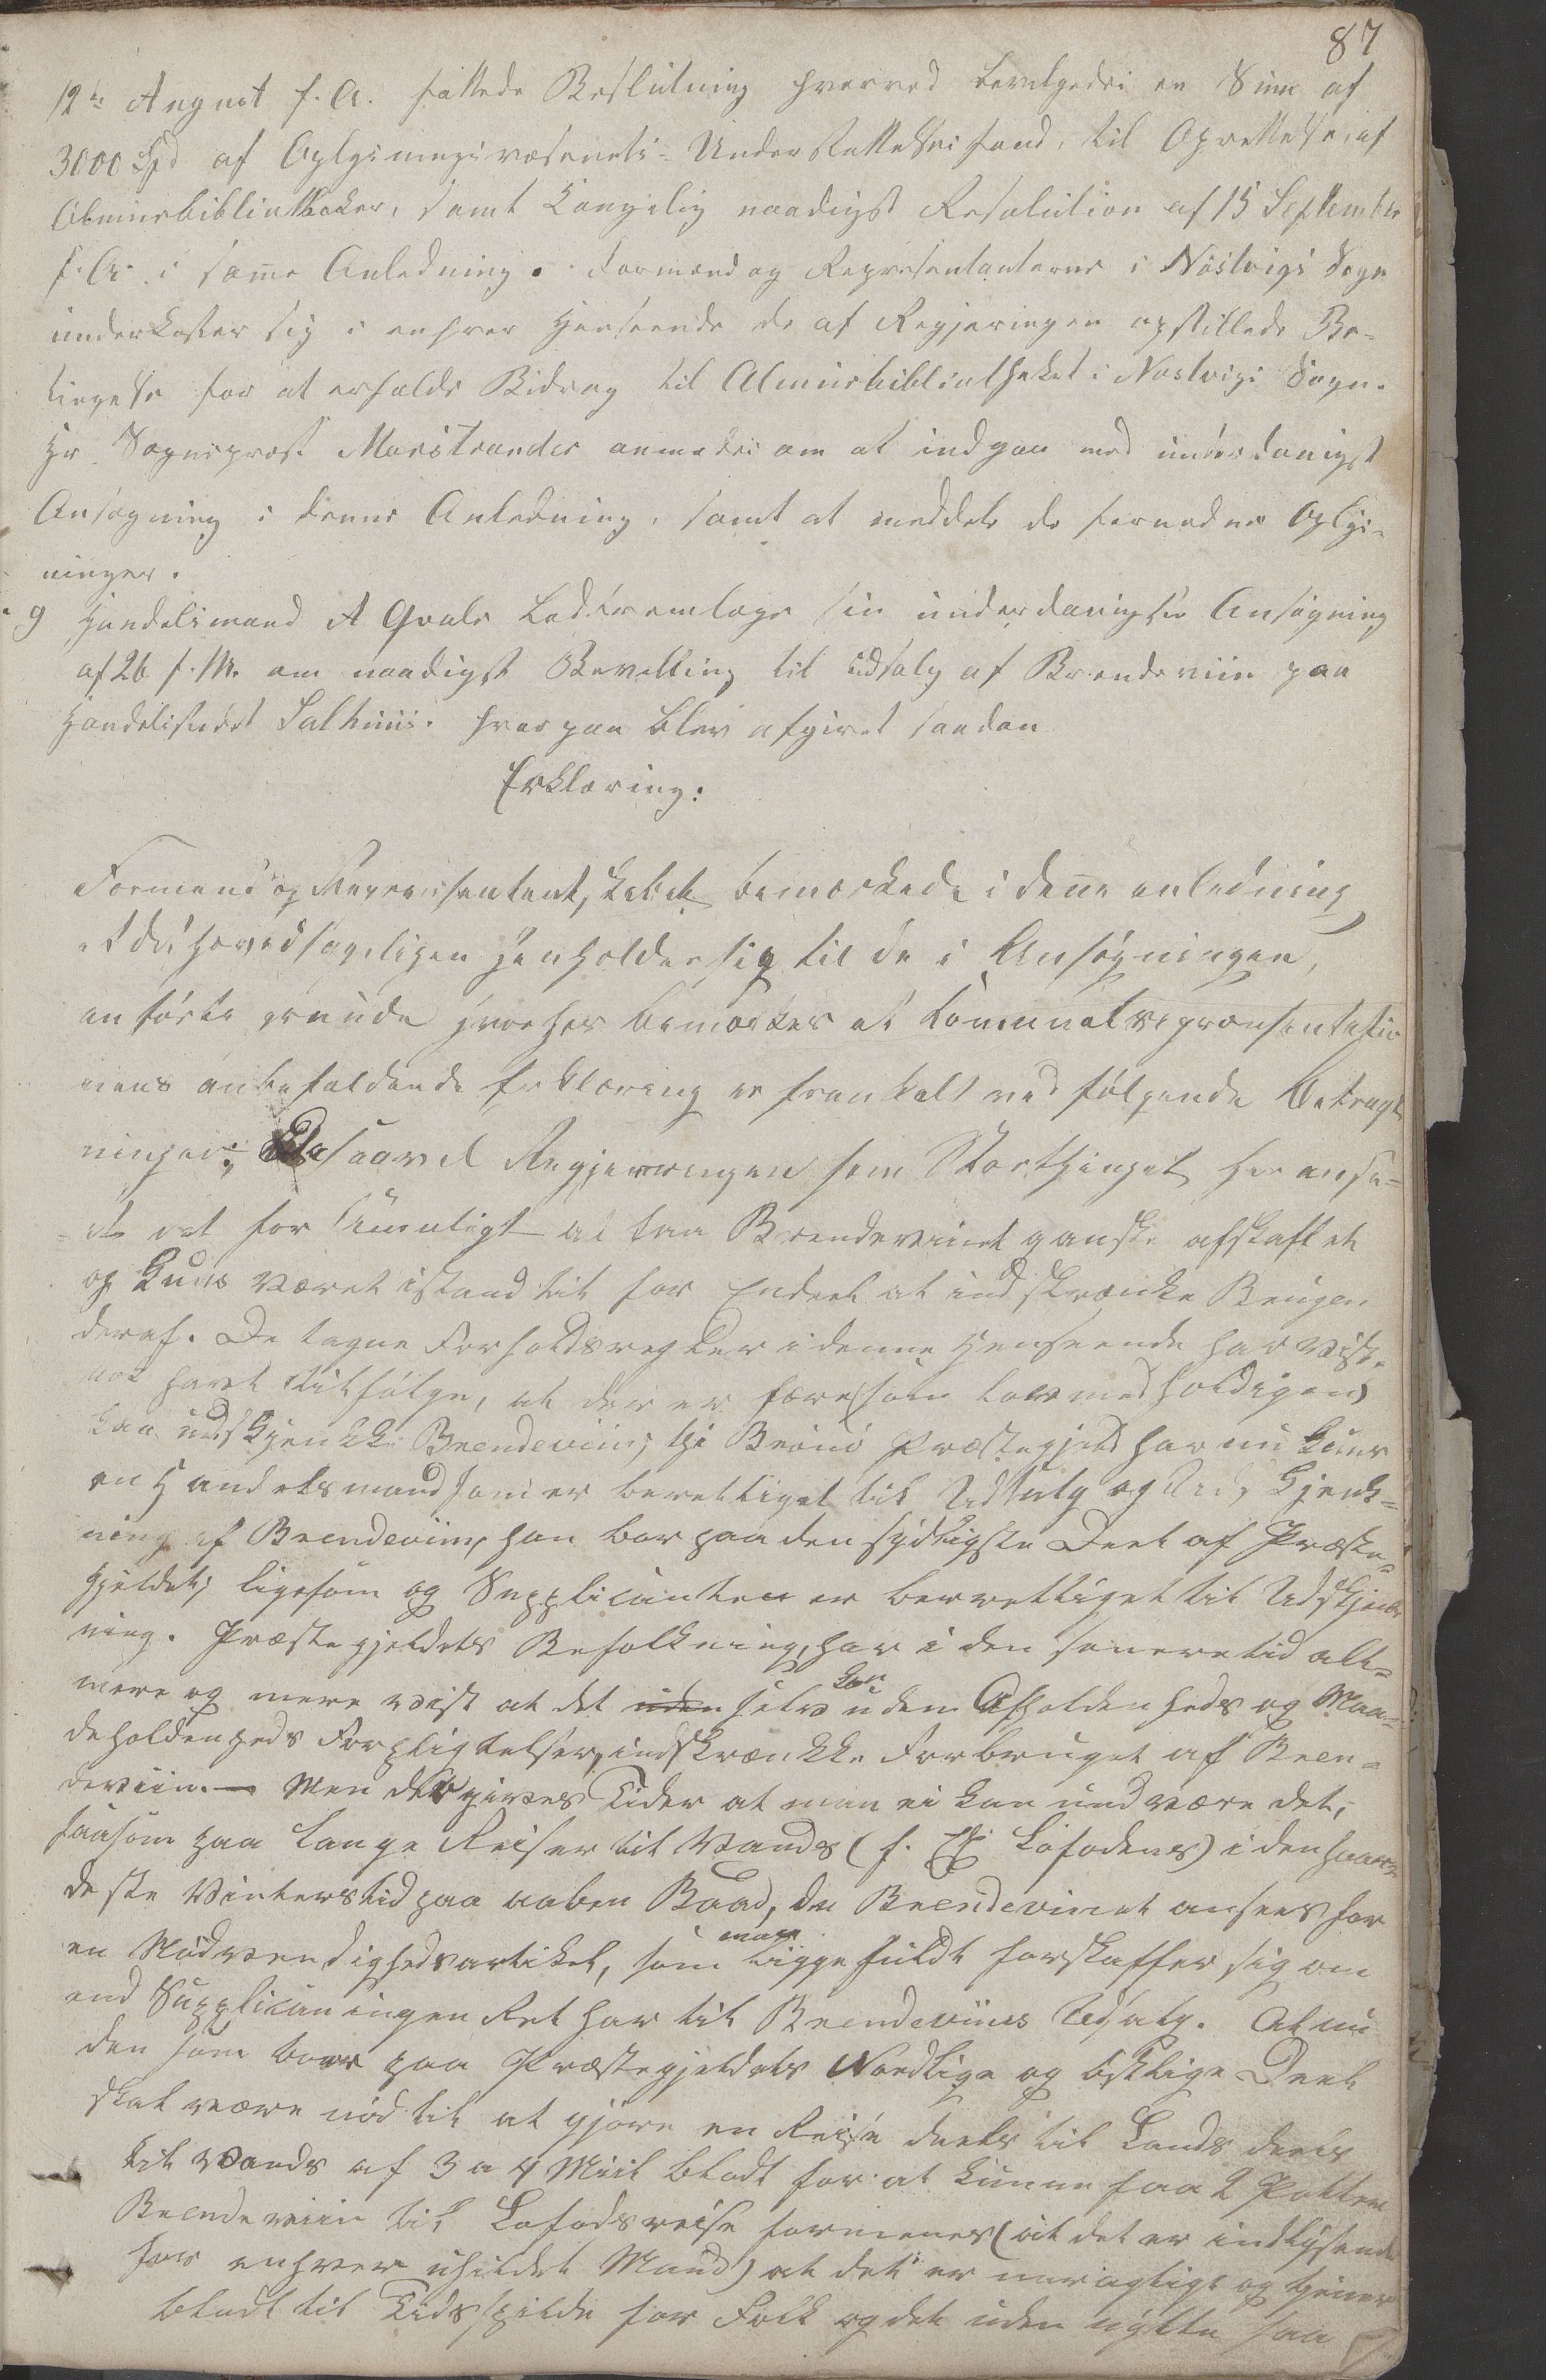 87
12te August f. A. fattede Beslutning hvorved bevilgedes en Sum af
3000 Spd af Oplysningsvæsenets-Understøttelsesfond, til Oprettelse af
Almuebibliotheker, samt Kongelig naadigst Resolution af 15 September
f. A. i samme Anledning. Formænd og Repræsentanterne i Nøstvigs Sogn
underkaster sig i enhver Henseende de af Regjeringen opstillede Be-
tingelser for at erholde Bidrag til Almuebibliotheket i Nøstvigs Sogn.
Hr Sogneprest Marstrander anmodes om at indgaa med underdanigst
Ansøgning i denne Anledning, samt at meddele de fornødne Oplys-
ninger.
9 Handelsmand A Qvale lod fremlægge sin underdanigste Ansøgning
af 26 f. M. om naadigst Bevilling til Udsalg af Brendeviin paa
Handelsstedet Salhuus. hvorpaa blev afgivet saadan
Erklæring:
Formænd og Representantskabet bemærkede i denne anledning
at de hovedsageligen henholder sig til de i Ansøgningen,
anførte grunde hvorhos bemærkes at Comunalrepræsentatio
nens anbefaldende Erklæring er fremkalt ved følgende Betragt
ninger; Da saavel Regjerringen som Storthinget har anse-
et det for umuligt at faa Brendevinet ganske afskaffet
og kuns været istand til for Endeel at indskrænke Brugen
deraf. De tagne Forholdsregler i denne Henseende har vist-
nok havt tilfølge, at der er færre som lovmedholdigen
kan udskjenkke Brendeviin; thi Brønø Præstegjeld har nu kuns
en Handelsmand som er berettiget til Udsalg og Udskjenk-
ning af Brendeviin, han bor paa den sydligste Deel af Præste-
gjeldet; ligesom og Supplicanten er berettiget til Udskjenk
ning. Præstegjeldets Befolkning, har i den senere tid alt-
mere og mere vist at det uden selv kan uden Afholdenheds og Maa-
deholdenheds Forpligtelser, indskrænkke Forbruget af Bren-
deviin. — Men der gives Tider at man ei kan undvære det,
saasom paa lange Reiser til Vands (f. Ex Lofodens) i den haar-
deste Vinterstid paa aaben Baad, da Brendevinet ansees for
en Nødvendighedsartikel, som man ligge fuldt forskaffer sig om
end Supplicaningen Ret har til Brendeviins Udsalg. At nu
den som boer paa Præstegjeldets Nordlige og østlige Deel
skal være nød til at gjøre en Reise deels til Lands deels
til Vands af 3 a 4 Miil blodt for at kunne faa 2 Potter
Brendeviin til Lofodsreise formenes (at det er indlysende
for enhver uhildet Mand) at det er unøagtigt og tjener
blodt til Tidsspilde for Folk og det uden nytte saa